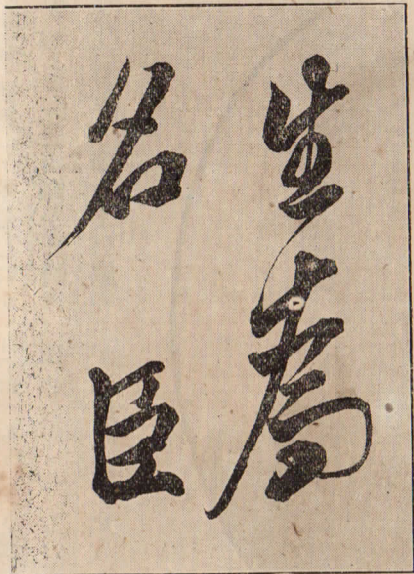 生為
名臣